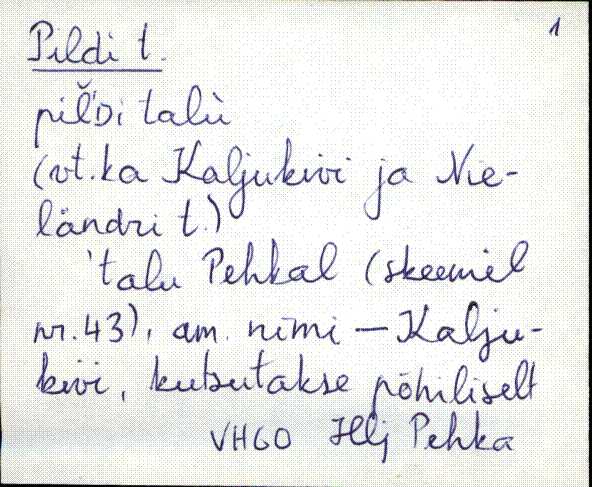 1
Pildi t.
pil̆'Di talù
(vt. ka Kaljukivi ja Nie-
ländri t.)
'talu Pehkal (skeemil
nr. 43), am. nimi – Kalju-
kivi, kutsutakse põhiliselt
VH60 Hlj Pehka